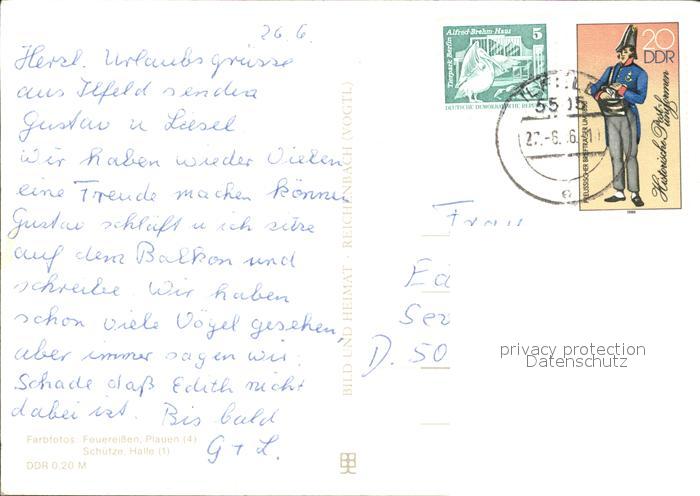 26.6.
Herzl. Urlaubsgrüsse
aus Ilfeld senden
Gustav u Liesel
Wir haben wieder Vielen
eine Freude machen können
Gustav schläft u ich sitze
auf dem Balkon und
schreibe. Wir haben
schon viele Vögel gesehen,
aber immer sagen wir:
Schade daß Edith nicht
dabei ist. Bis bald
G + L.
Farbfotos: Feuereißen, Plauen (4)
Schütze, Halle (1)
DDR 0,20 M
BILD UND HEIMAT · REICHENBACH (VOGTL)
Tierpark Berlin
Alfred-Brehm-Haus
5
DEUTSCHE DEMOKRATISCHE REPUBLIK
20
DDR
Historische Postuniformen
1986
5505
Frau
Ed
D. 50
privacy protection
Datenschutz